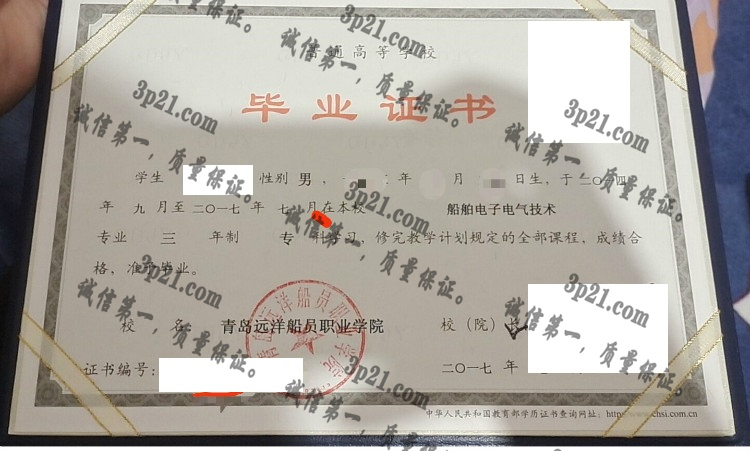 普通高等学校
毕业证书
学生 性别 男， 年 月 日生，于 二〇一四
年 九 月至 二〇一七 年 七 月在本校 船舶电子电气技术
专业 三 年制 专 科学习，修完教学计划规定的全部课程，成绩合
格，准予毕业。
校 名： 青岛远洋船员职业学院 校（院）长
证书编号： 二〇一七 年
中华人民共和国教育部学历证书查询网址：http://www.chsi.com.cn
青岛远洋船员职业学院
3p21.com
诚信第一，质量保证。
3p21.com
诚信第一，质量保证。
3p21.com
诚信第一，质量保证。
3p21.com
诚信第一，质量保证。
3p21.com
诚信第一，质量保证。
3p21.com
诚信第一，质量保证。
3p21.com
诚信第一，质量保证。
3p21.com
诚信第一，质量保证。